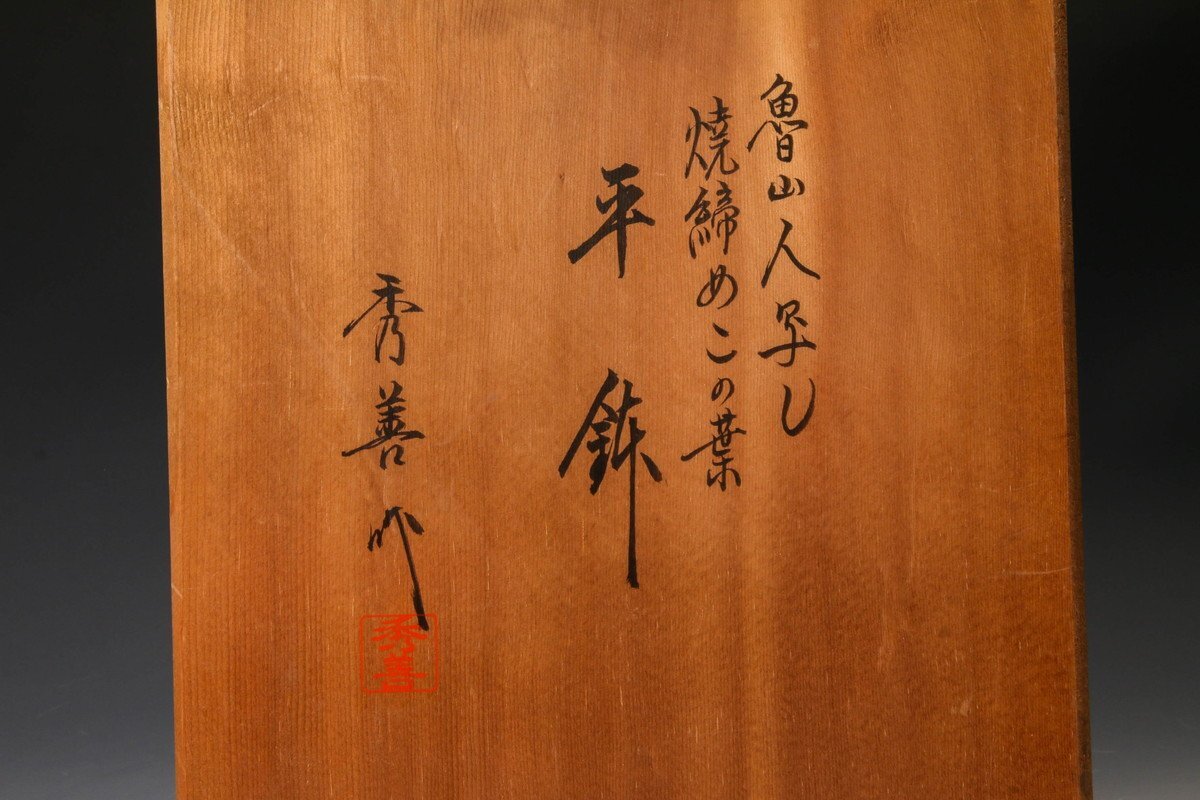 魯山人写し
焼締めこの葉
平鉢
秀善作
秀善